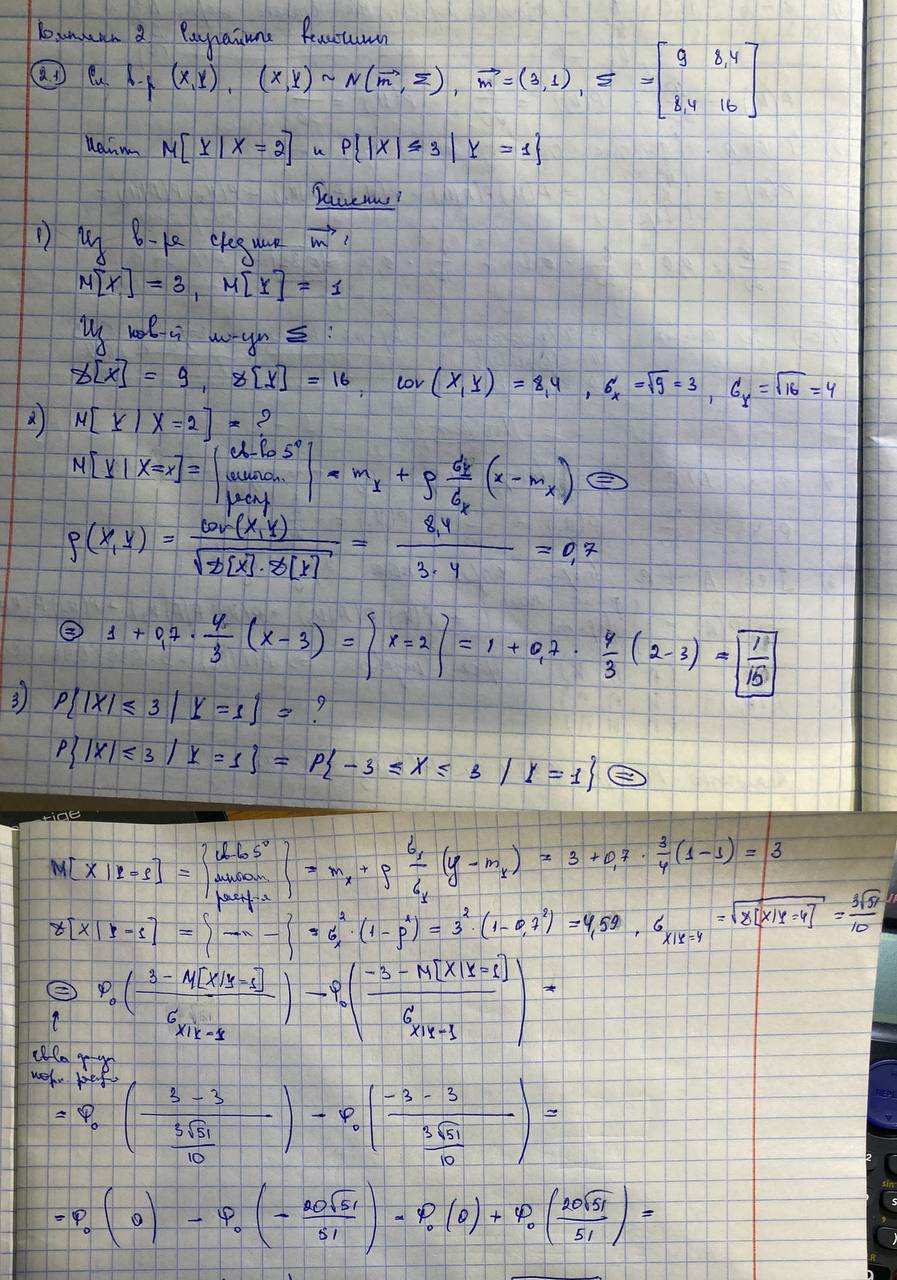 Комплект 2 Случайные величины
2.1 Сл. в-р (X,Y), (X,Y) ~ N(m⃗, Σ), m⃗ = (3,1), Σ = [9 8,4; 8,4 16]
Найти M[Y|X=2] и P{|X| ≤ 3 | Y = 1}
Решение:
1) Из в-ра средних m⃗:
M[X] = 3, M[Y] = 1
Из ков-й м-цы Σ:
D[X] = 9, D[Y] = 16, cov(X,Y) = 8,4, σ_X = √9 = 3, σ_Y = √16 = 4
2) M[Y|X=2] = ?
M[Y|X=x] = {св-во 5° многом. распр} = m_Y + ρ σ_Y/σ_X (x - m_X) ⊜
ρ(X,Y) = cov(X,Y)/√(D[X]·D[Y]) = 8,4/(3·4) = 0,7
⊜ 1 + 0,7 · 4/3 (x-3) = {x=2} = 1 + 0,7 · 4/3 (2-3) = 1/15
3) P{|X| ≤ 3 | Y = 1} = ?
P{|X| ≤ 3 | Y = 1} = P{-3 ≤ X ≤ 3 | Y = 1} ⊜
tige
M[X|Y=1] = {св-во 5° многом. распр-я} = m_X + ρ σ_X/σ_Y (y - m_Y) = 3 + 0,7 · 3/4 (1-1) = 3
D[X|Y=1] = {—"—} = σ_X² · (1-ρ²) = 3² · (1-0,7²) = 4,59, σ_X|Y=4 = √D[X|Y=4] = 3√51/10
⊜ Φ₀((3 - M[X|Y=1])/σ_X|Y=1) - Φ₀((-3 - M[X|Y=1])/σ_X|Y=1) =
↑
св-ва ф-ции
норм. распр
= Φ₀((3-3)/(3√51/10)) - Φ₀((-3-3)/(3√51/10)) =
= Φ₀(0) - Φ₀(-20√51/51) = Φ₀(0) + Φ₀(20√51/51) =